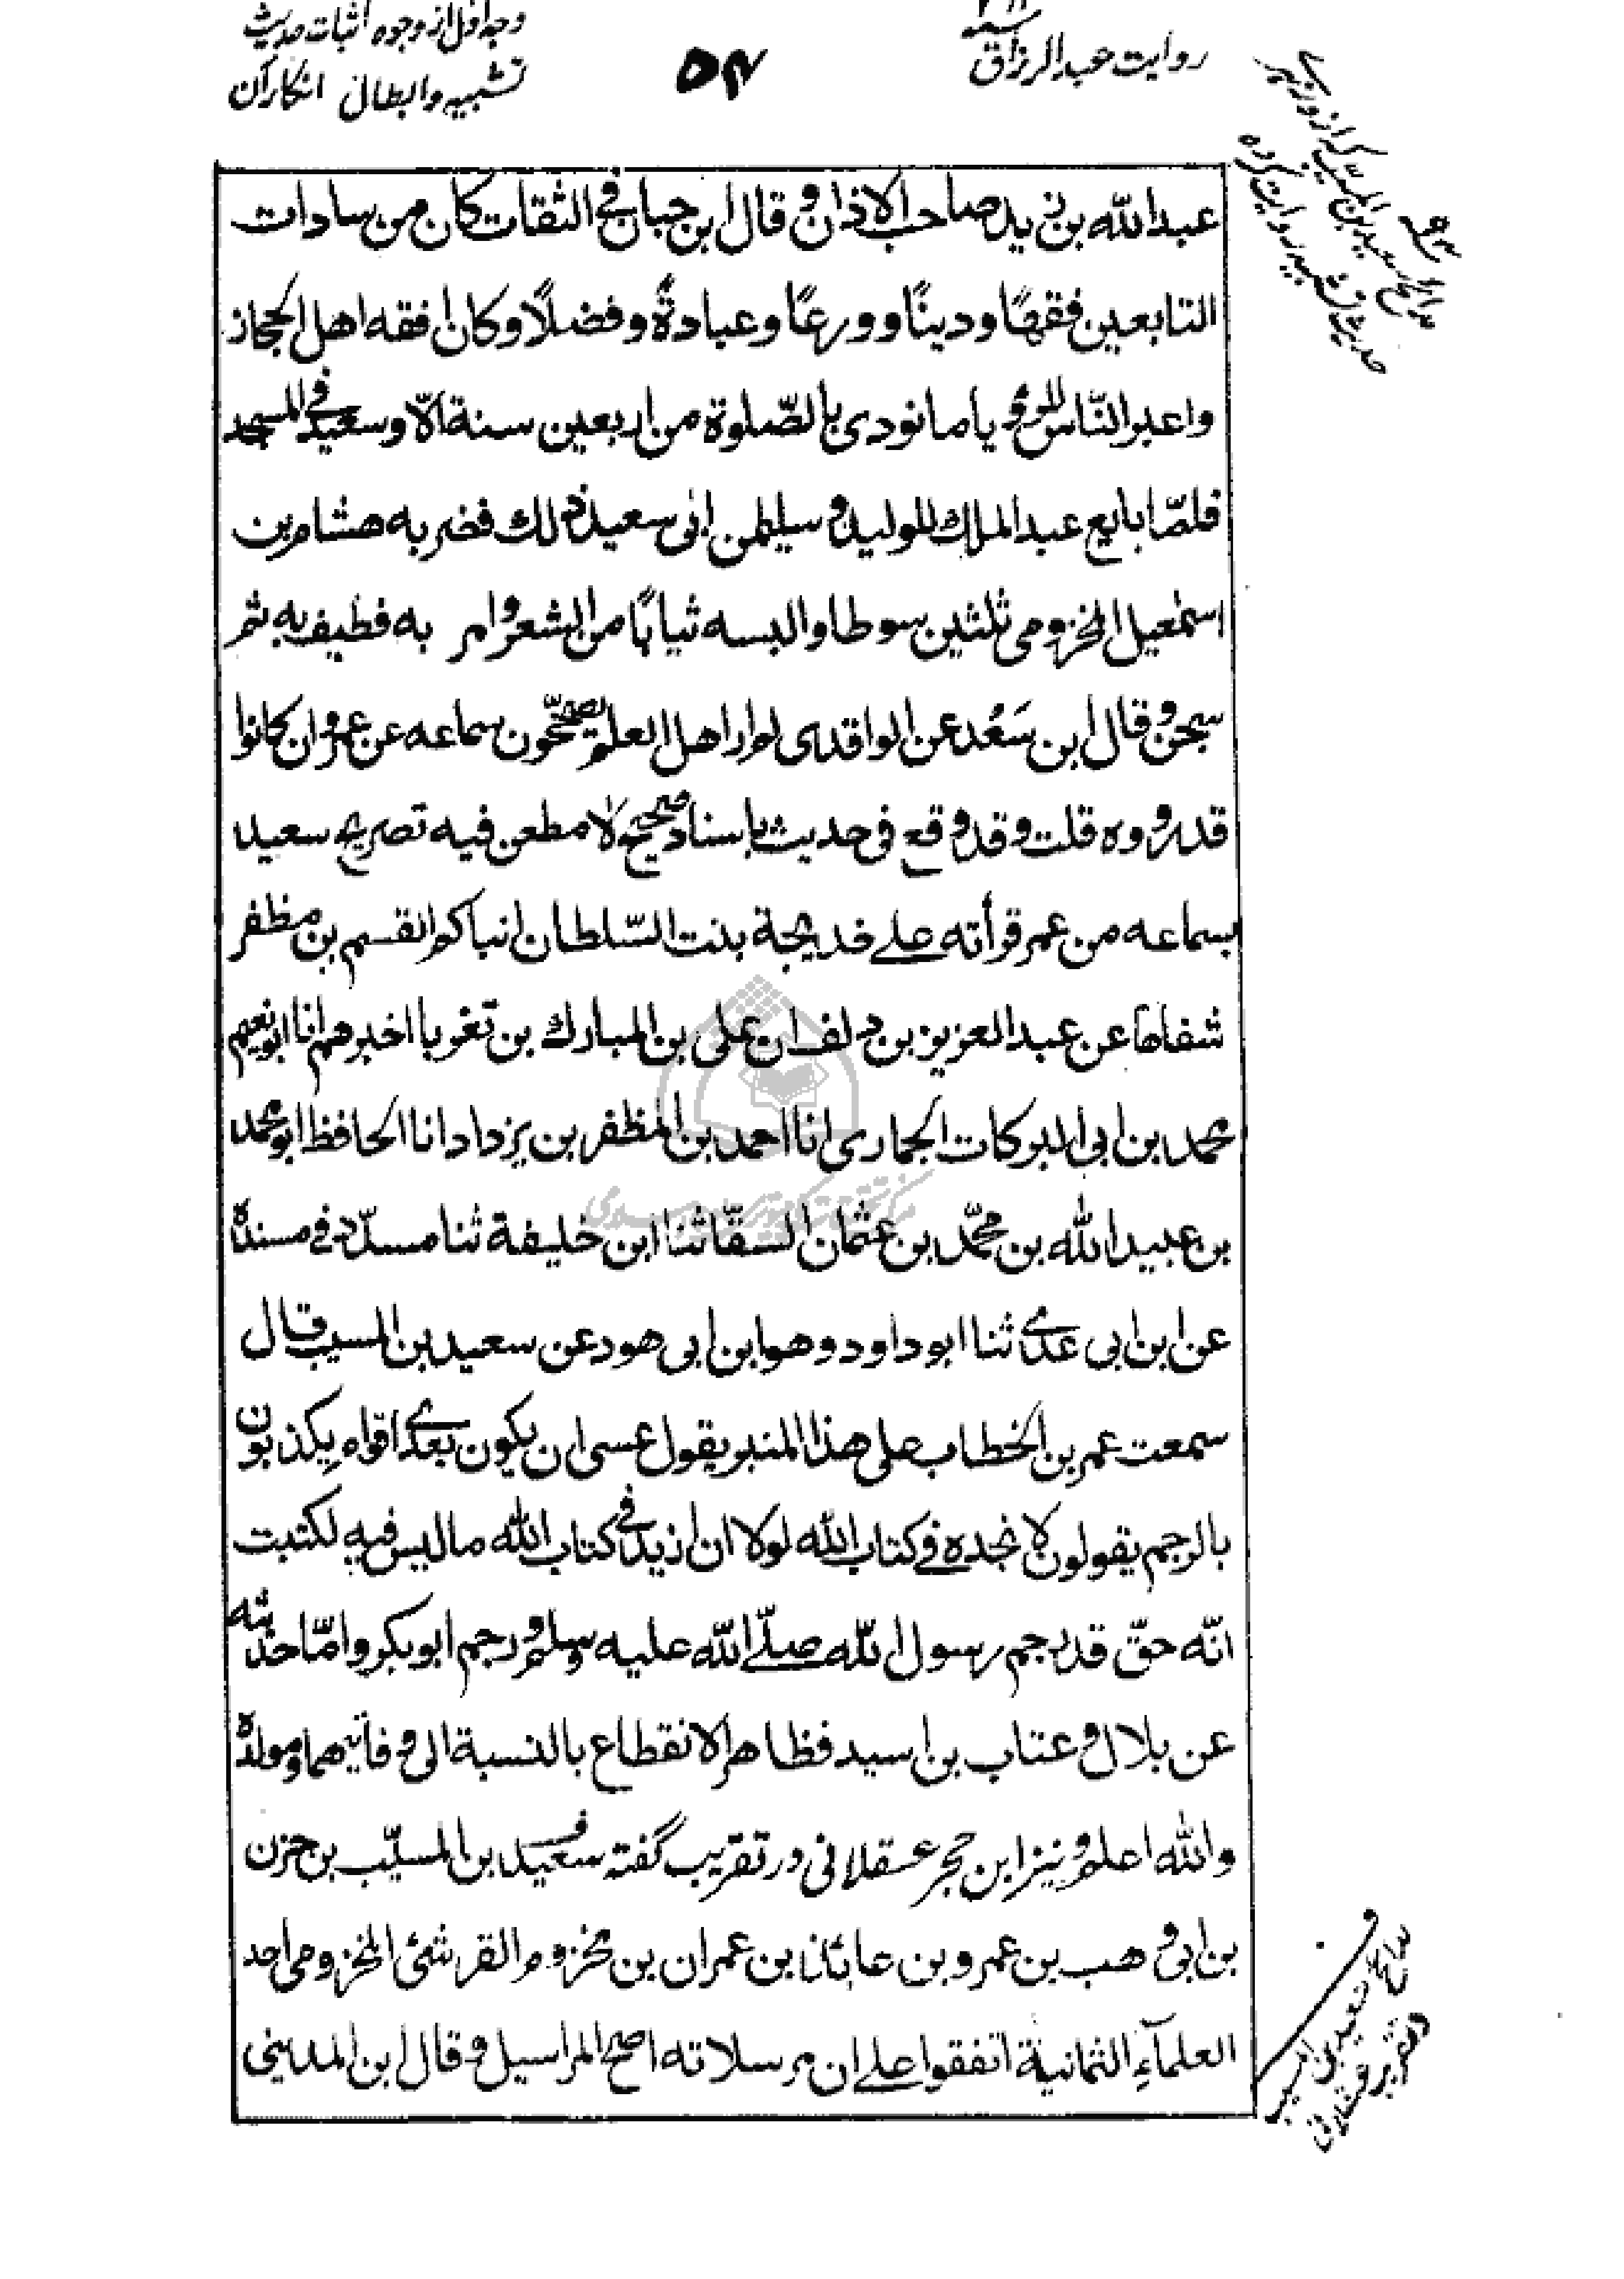 روایت عبدالرزاق
۵۴
وجه اول از وجوه اثبات حدیث
تشبیه و ابطال انکار آن
عبدالله بن زید صاحب الاذان و قال ابن حبان فی الثقات کان من سادات
التابعین فقهًا و دینًا و ورعًا و عبادةً و فضلًا و کان افقه اهل الحجاز
و اعبر النّاس للرؤیا ما نودی بالصّلوة من اربعین سنة الّا و سعید فی المسجد
فلمّا بایع عبد الملک للولید و سلیمن ابی سعید ذلک فضربه هشام بن
اسمعیل المخزومی ثلثین سوطا و البسه ثیابًا من الشعر و امر به فطیف به ثم
سجن و قال ابن سَعُد عن الواقدی لم ار اهل العلم یصحّحون سماعه عن عمر و ان کانوا
قد رووه قلت و قد وقع فی حدیث باسناد صحیح لا مطعن فیه تصریح سعید
بسماعه من عمر قرأته علے خدیجة بنت السّلطان انباکم القسم بن مظفر
شفاها عن عبد العزیز بن دلف ان علی بن المبارك بن تغوبا اخبرهم انا ابو نعیم
محمد بن ابی البرکات الجماری انا احمد بن المظفر بن یزداد انا الحافظ ابو محمد
بن عبید الله بن محمّد بن عثمان السقّا ثنا ابن خلیفة ثنا مسدّد فی مسنده
عن ابن ابی عدے ثنا ابو داود و هو ابن ابی هود عن سعید بن المسیب قال
سمعت عمر بن الخطاب علی هذا المنبر یقول عسی ان یکون بعدے اقواه یکذبون
بالرجم یقولون لا نجده فی کتاب الله لولا ان ازید فی کتاب الله ما لیس فیه لکتبت
انّه حقّ قد رجم رسول الله صلّے الله علیه وسلم و رجم ابو بکر و امّا حدیثه
عن بلال و عتاب بن اسید فظاهر الانقطاع بالنسبة الی وفاتیهما و مولده
و الله اعلم و نیز ابن حجر عسقلانی در تقریب گفته سعید بن المسیّب بن حزن
بن ابی وهب بن عمرو بن عائذ بن عمران بن مخزوم القرشی المخزومی احد
العلمآء الثمانیة اتفقوا علے ان مرسلاته اصح المراسیل و قال ابن المدینی